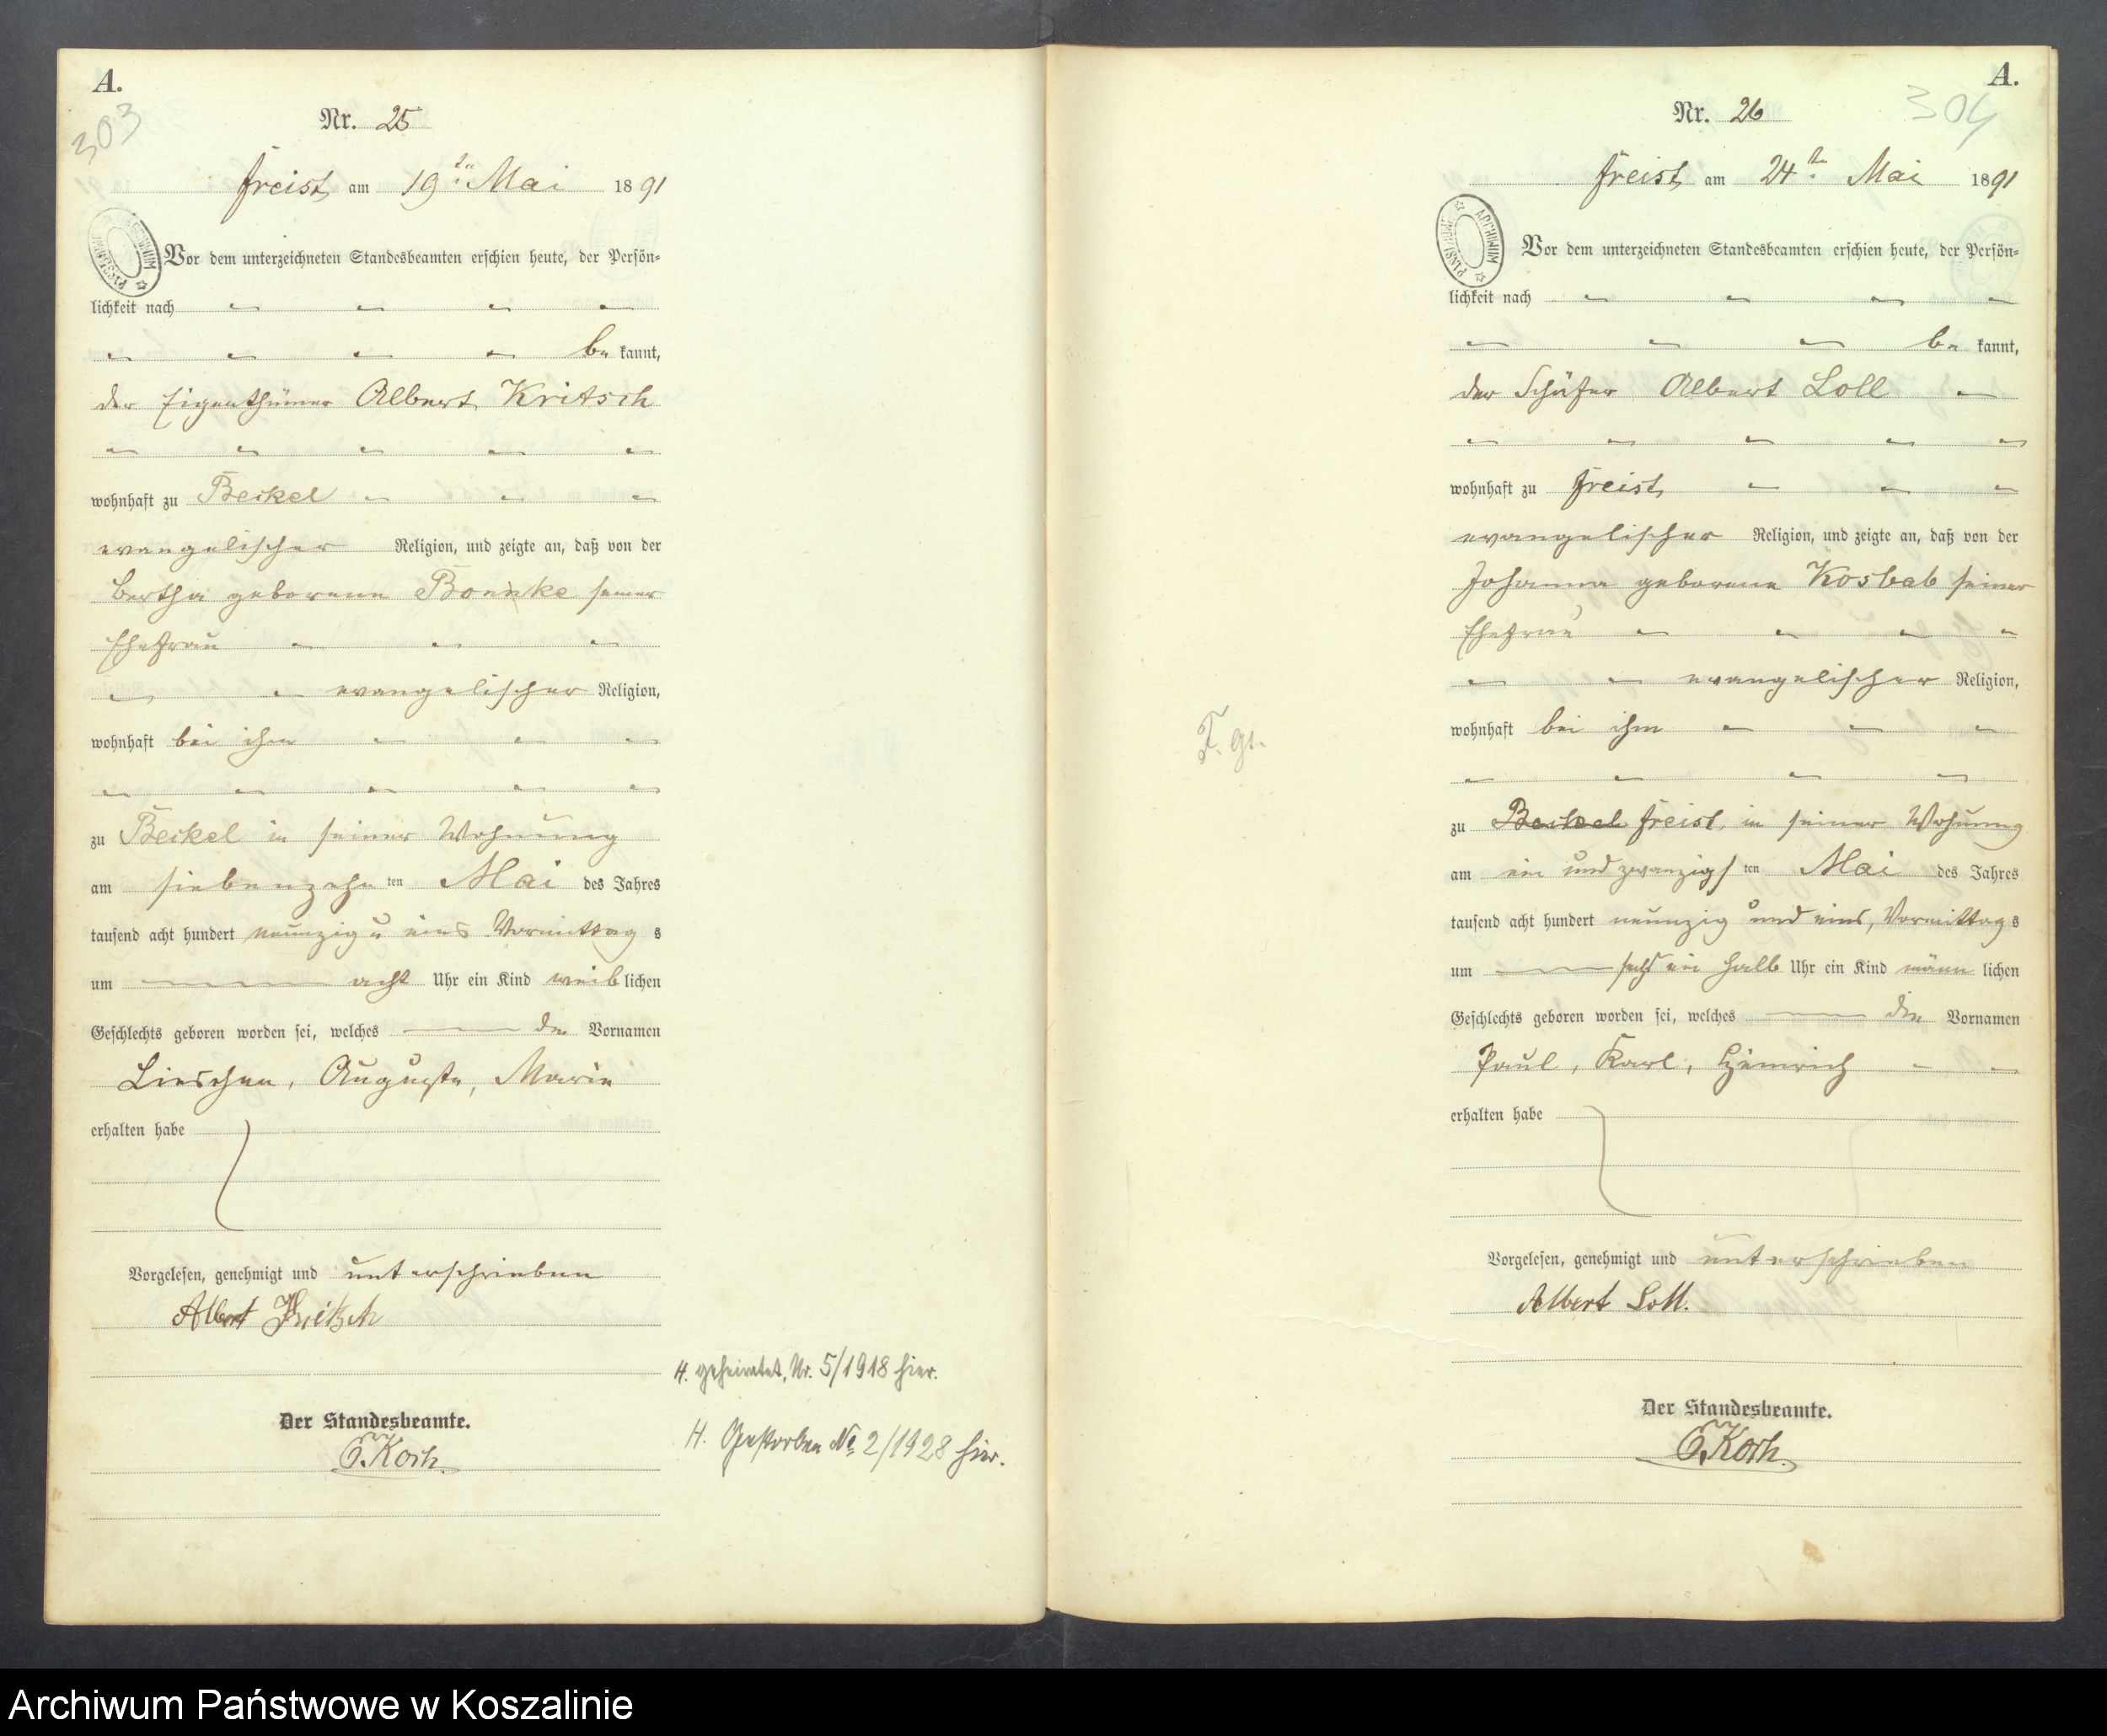 A.
303
Nr. 25
Freist am 19ten Mai 1891
ARCHIWUM PAŃSTWOWE
Vor dem unterzeichneten Standesbeamten erschien heute, der Persön-
lichkeit nach
be kannt,
der Eigenthümer Albert Kritsch
wohnhaft zu Beckel
evangelischer Religion, und zeigte an, daß von der
Bertha geborenen seiner
Ehefrau
evangelischer Religion,
wohnhaft bei ihm
zu Beckel in seiner Wohnung
am siebenzehn ten Mai des Jahres
tausend acht hundert neunzig u eins Vormittag s
um acht Uhr ein Kind weib lichen
Geschlechts geboren worden sei, welches die Vornamen
Lieschen, Auguste, Marie
erhalten habe
Vorgelesen, genehmigt und unterschrieben
Albert Kritsch
H. geheiratet, Nr. 5/1918 hier.
Der Standesbeamte.
E. Koch.
H. Gestorben No 2/1928 hier.
A.
304
Nr. 26
Freist am 24ten Mai 1891
ARCHIWUM PAŃSTWOWE
Vor dem unterzeichneten Standesbeamten erschien heute, der Persön-
lichkeit nach
be kannt,
der Schäfer Albert Loll
wohnhaft zu Freist
evangelischer Religion, und zeigte an, daß von der
Johanna geborene Kosbab seiner
Ehefrau
evangelischer Religion,
wohnhaft bei ihm
F. gr.
zu Beckel Freist, in seiner Wohnung
am ein und zwanzigs ten Mai des Jahres
tausend acht hundert neunzig und eins, Vormittag s
um sechs ein halb Uhr ein Kind männ lichen
Geschlechts geboren worden sei, welches die Vornamen
Paul, Karl, Heinrich
erhalten habe
Vorgelesen, genehmigt und unterschrieben
Albert Loll.
Der Standesbeamte.
E. Koch.
Archiwum Państwowe w Koszalinie